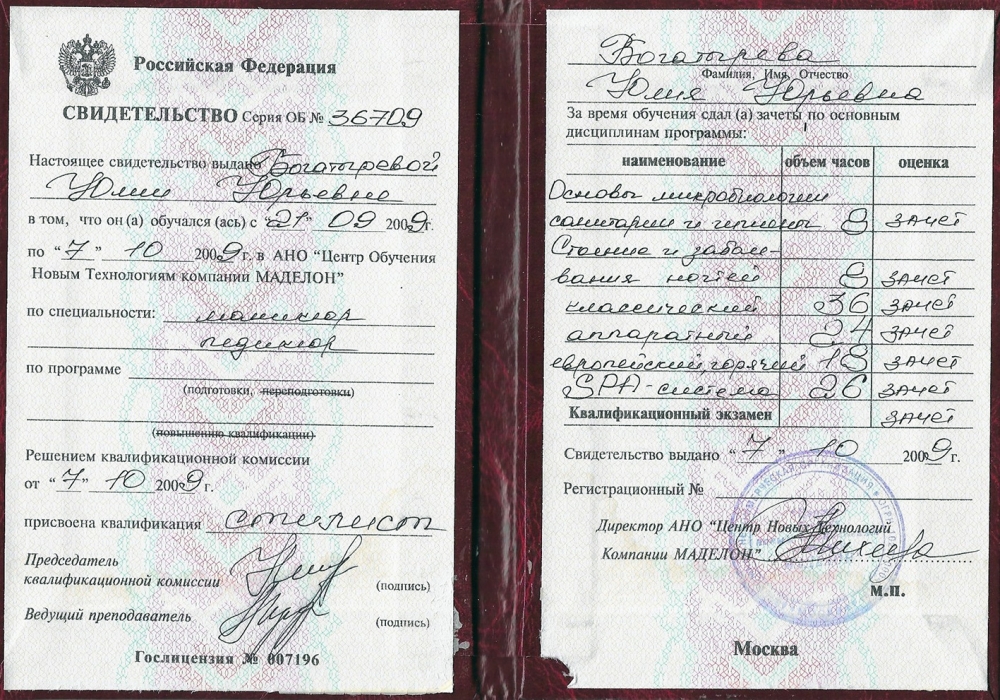 Российская Федерация
СВИДЕТЕЛЬСТВО Серия ОБ № 36709
Настоящее свидетельство выдано Богатыревой
Юлии Юрьевне
в том, что он (а) обучался (ась) с "21" 09 2009г.
по "7" 10 2009г. в АНО "Центр Обучения
Новым Технологиям компании МАДЕЛОН"
по специальности: маникюр
педикюр
по программе
(подготовки, переподготовки)
(повышению квалификации)
Решением квалификационной комиссии
от "7" 10 2009 г.
присвоена квалификация стилист
Председатель
квалификационной комиссии (подпись)
Ведущий преподаватель
(подпись)
Гослицензия № 007196
Богатырева
Фамилия, Имя, Отчество
Юлия Юрьевна
За время обучения сдал (а) зачеты по основным
дисциплинам программы:
наименование объем часов оценка
Основы микробиологии
санитарии и гигиены 8 зачет
Строение и заболе-
вания ногтей 8 зачет
классический 36 зачет
аппаратный 24 зачет
европейский горячий 18 зачет
SPA-система 26 зачет
Квалификационный экзамен зачет
Свидетельство выдано "7" 10 2009г.
Регистрационный №
Директор АНО "Центр Новых Технологий
Компании МАДЕЛОН"
М.П.
Москва